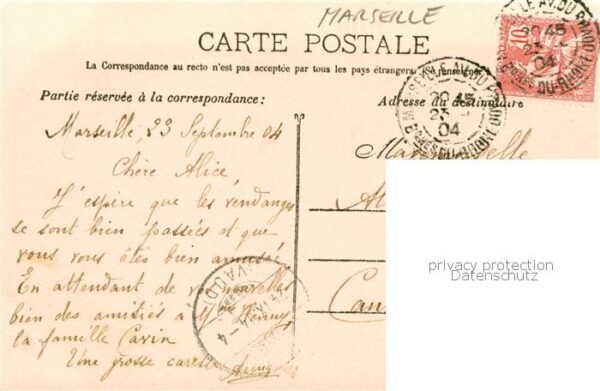 MARSEILLE
CARTE POSTALE
La Correspondance au recto n'est pas acceptée par tous les pays étrangers. (Se renseigner
Partie réservée à la correspondance:
Adresse du destinataire
10
MARSEILLE AV. DU PRADO
20 45
23
04
BCHES DU-RHONE
Marseille, 23 Septembre 04
Chère Alice,
J'espère que les vendanges
se sont bien passées et que
vous vous êtes bien amusée
En attendant de vos nouvelles
bien des amitiés à Henry
la famille
Une grosse
Mademoiselle
Al
Can
VAUD
privacy protection
Datenschutz